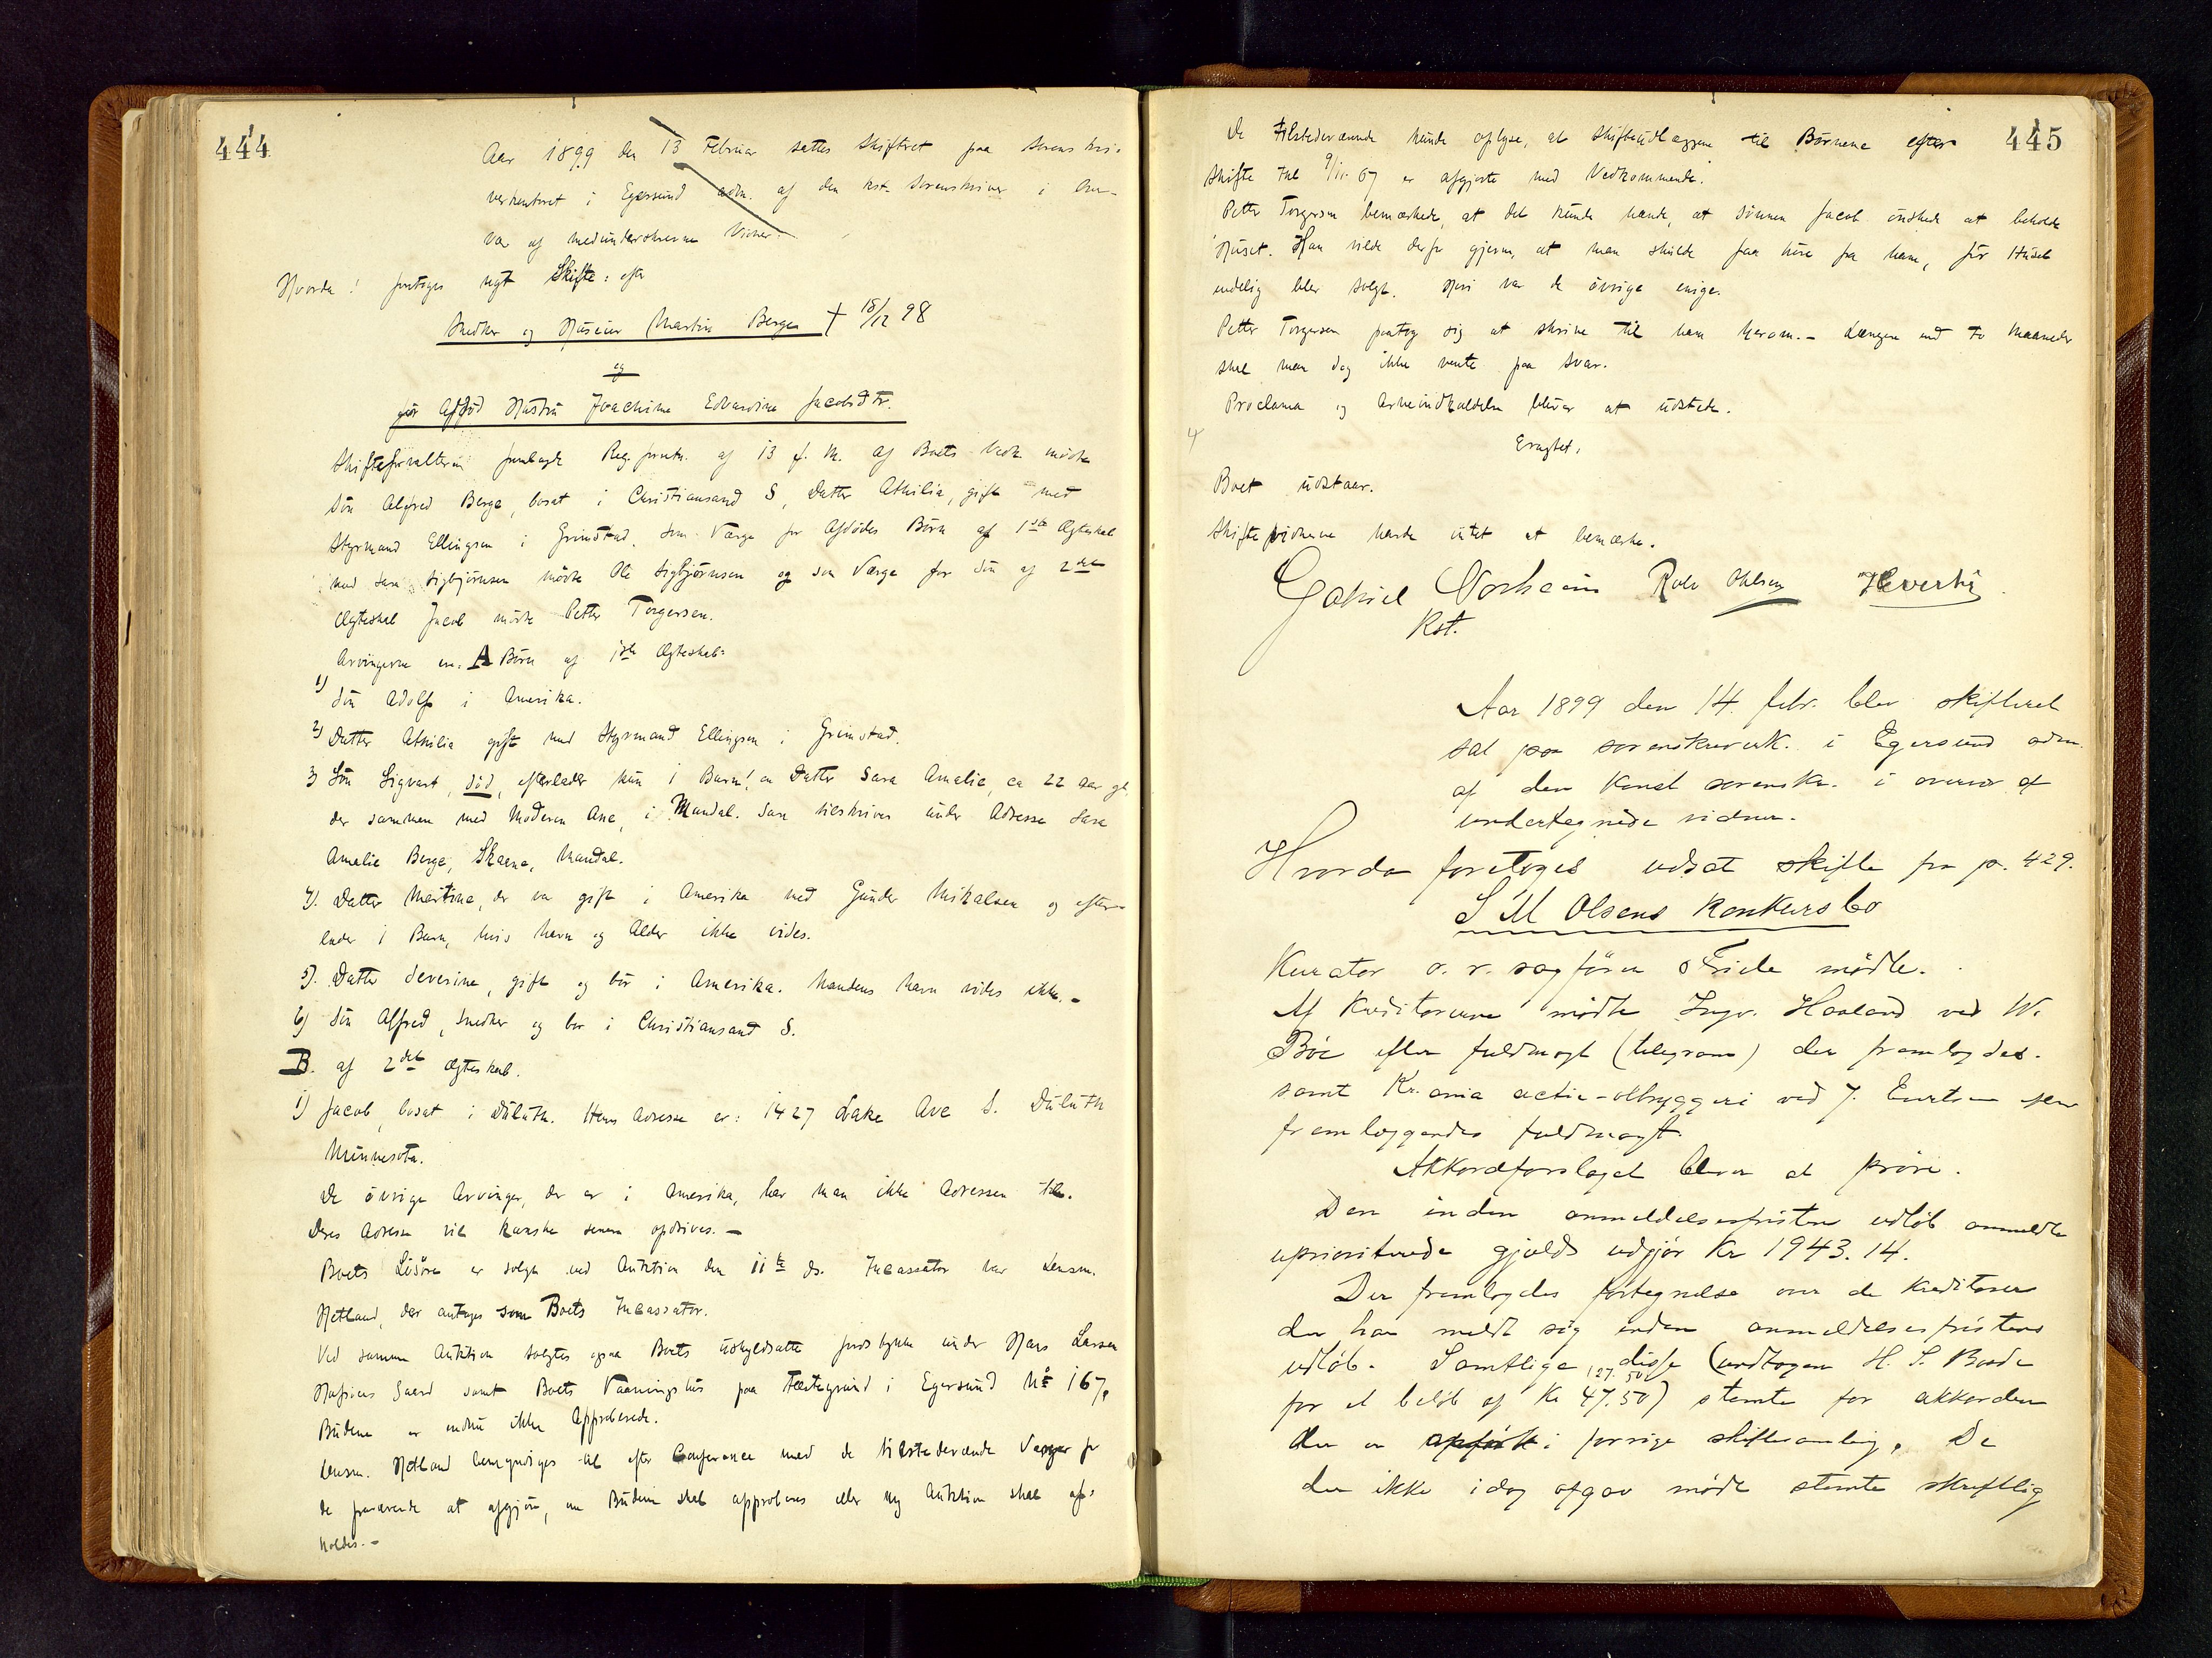 444
Aar 1899 den 13 Februar sattes Skifteret paa Sorenskri-
verkontoret i Egersund adm. af den kst. Sorenskriver i Over-
vær af medunderskrevne Vidner.
Hvorda! foretoges nyt Skifte: efter
Snedker og Huseier Martin Berge † 18/12 98
og
før Afdød Hustru Joachime Edvardine Jacobsdtr.
Skifteforvalteren fremlagde Reg. forretn. af 13 f. M. Af Boets Vedk mødte
Søn Alfred Berge, bosat i Christiansand S, Datter Athilia, gift med
Styrmand Ellingsen i Grimstad. Som Værge for Afdødes Børn af 1ste Ægteskab
med Sara Sigbjørnsen mødte Ole Sigbjørnsen og som Værge for Søn af 2det
Ægteskab Jacob mødte Petter Torgersen.
Arvingerne er: A Børn af 1ste Ægteskab:
1) Søn Adolf i Amerika.
2) Datter Athilia gift med Styrmand Ellingsen i Grimstad.
3) Søn Sigvart, død, efterlader kun 1 Barn: en Datter Sara Amalie, ca 22 Aar gl.
der sammen med Moderen Ane, i Mandal. Sara tilskrives under Adresse Sara
Amalie Berge, Mandal.
4). Datter Martine, der var gift i Amerika med Gunder Mikalsen og efter-
lader 1 Barn, hvis Navn og Alder ikke vides.
5). Datter Severine, gift og bor i Amerika. Mandens Navn vides ikke. -
6) Søn Alfred, Snedker og bor i Christiansand S.
B. af 2det Ægteskab.
1) Jacob, bosat i Duluth. Hans Adresse er: 1427 Lake Ave S. Duluth
Minnesota.
De øvrige Arvinger, der er i Amerika, har man ikke Adressen til.
Deres Adresse vil kanske senere opdrives. -
Boets Løsøre er solgt ved Auktion den 11te ds. Incassator var Lensm.
Hetland, der antages som Boets Incassator.
Ved samme Auktion solgtes ogsaa Boets uskyldsatte Jordstykke under Hans Larsen
Gaard samt Boets Vaaningshus paa Fæstegrund i Egersund No 167.
Budene er endnu ikke Approberede.
Lensm. Hetland bemyndiges til efter Conferance med de tilstedeværende Værger for
de fraværende at afgjøre, om Budene skal approberes eller ny Auktion skal af-
holdes. -
445
De tilstedeværende kunde oplyse, at Skifteudlæggene til Børnene efter
Skifte 9/11. 67 er afgjorte med Vedkommende.
Petter Torgersen bemærkede, at det kunde hænde, at Sønnen Jacob ønskede at beholde
Huset. Han vilde derfor gjerne, at man skulde faa høre fra ham, før Huset
endelig blev solgt. Heri var de øvrige enige.
Petter Torgersen paatog sig at skrive til ham herom. - Længere end to Maaneder
skal man dog ikke vente paa Svar.
Proclama og Arveindkaldelse bliver at udstede.
4
Eragtet,
Boet udstaar.
Skiftevidnerne havde intet at bemærke.
Gabriel Norheim Rolv Ohlsen
Kst.
Aar 1899 den 14. febr. blev skifteret
sat paa sorenskriverk. i Egersund adm.
af den Konst sorenskr. i overvær af
undertegnede vidner.
Hvorda foretoges udsat skifte fra p. 429.
S M Olsens Konkursbo
Kurator o. r. sagfører Friele mødte.
Af kreditorerne mødte Ingv. Haaland ved W.
Böe efter fuldmagt (telegram) der fremlagdes.
samt Kr.ania actie-ølbryggeri ved J. Evertsen efter
fremlæggendes fuldmagt.
Akkordforslaget blev at prøve.
Den inden anmeldelsesfristen udløb anmeldte
uprioriterede gjæld udgjør Kr 1943.14.
Der fremlagdes fortegnelse over de kreditorer
der har meldt sig inden anmeldelsesfristens
udløb. Samtlige disse (undtagen H. S. Bode
127.50
for et beløb af Kr 47.50) stemte for akkorden
der er opført i forrige skiftesamling. De
der ikke idag afgav møde stemte skriftlig